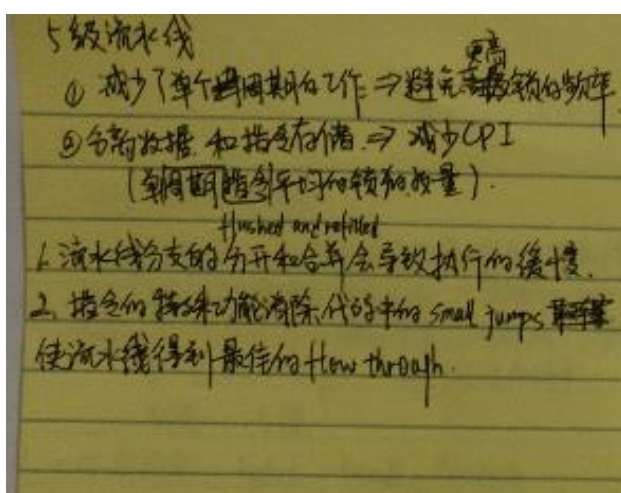 5级流水线
更高
① 减少了单个周期的工作 ⇒ 避免锁的频率
② 分离数据和指令存储 ⇒ 减少CPI
(单周期指令平均的锁的数量).
flushed and refilled
1. 流水线分支的分开和合并会导致执行的缓慢.
2. 指令的特殊功能消除代码中的 small jumps
使流水线得到最佳的 flow through.